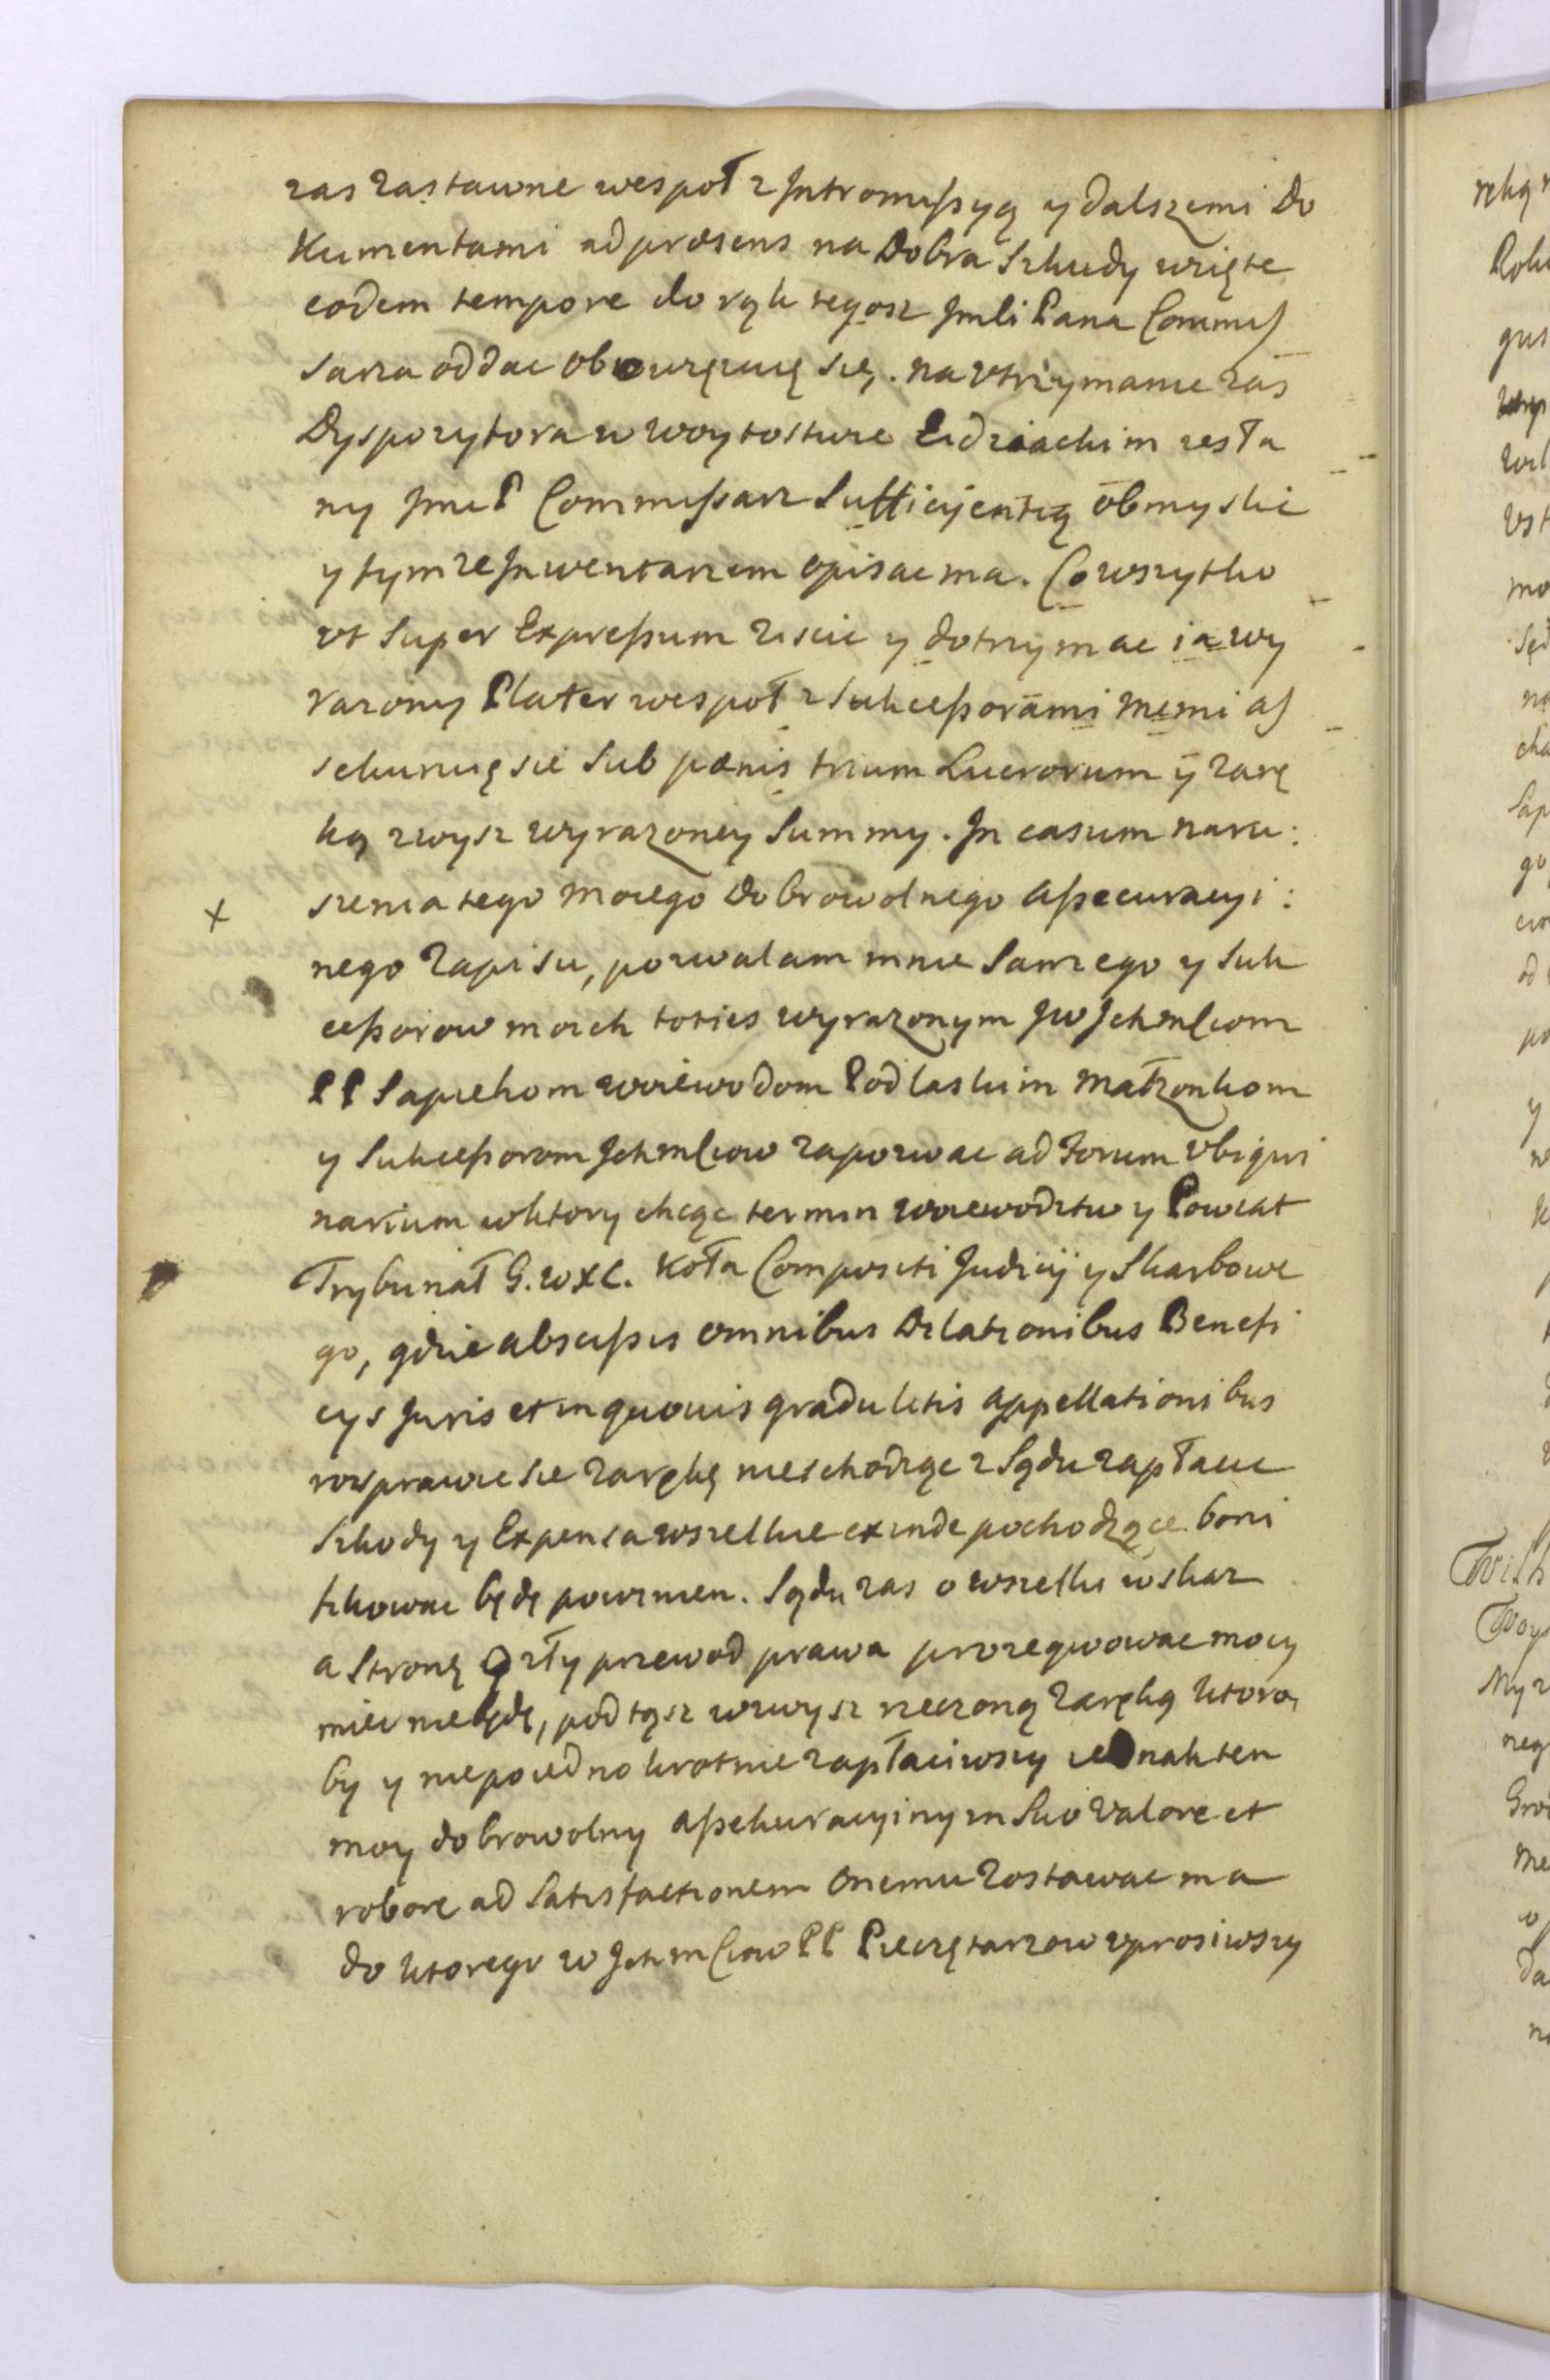 zas zastawne wespoł z Intromißyą y dalszemi Do
kumentami ad præsens na Dobra Szkudy wzięte
eodem tempore do rąk tegosz Jmłi Pana Commis
sarza oddac obowięzuię się. na Vtrzymanie zas
Dyspozytora w woytostwie zesła
ny Jmć P Commißarz Sufficijentią obmyslic
y tym ze Inwentarzem opisac ma. Co wszytko
vt Super Expreßum ziscic y dotrzymac ia wy
razony Plater wespoł z Sukceßorami memi as
sekuruię sie Sub pænis trium Lucrorum y zarę
ką zwysz wyrazoney Summy. In casum naru:
szenia tego moiego dobrowolnego aßecuracyi:
nego zapisu, pozwalam mnie Samego y Suk
ceßorow moich toties wyrazonym JW Ichmciom
PP Sapiehom woiewodom Podlaskim małzonkom
y Sukceßorom Ichmciow zapozwac ad Forum Vbiqui
narium w ktory chcąc termin woiewodztwo y Powiat
Trybunał G. W X L. Koła Compositi Judicij y Skarbowe
go, gdzie absciβis omnibus Dilationibus Benefi
cys Juris et in quouis gradu litis appellationibus
rozprawic sie zarękę nieschodząc z Sądu zapłacic
Szkody y Expensa wszelkie exinde pochodzące boni
fikowac będę powinien. Sądu zas o wszelki wskaz
a Stronę o zły przewod prawa prozeqwowac mocy
miec niebędę, pod tąsz wzwysz rzeczoną zaręką ktorą
by y niepoiednokrotnie zapłaciwszy iednak ten
moy dobrowolny aßekuracyiny in Suo Valore et
robore ad Satisfactionem onemu zostawac ma
do ktorego w Ichmciow PP Pieczętarzow vprosiwszy